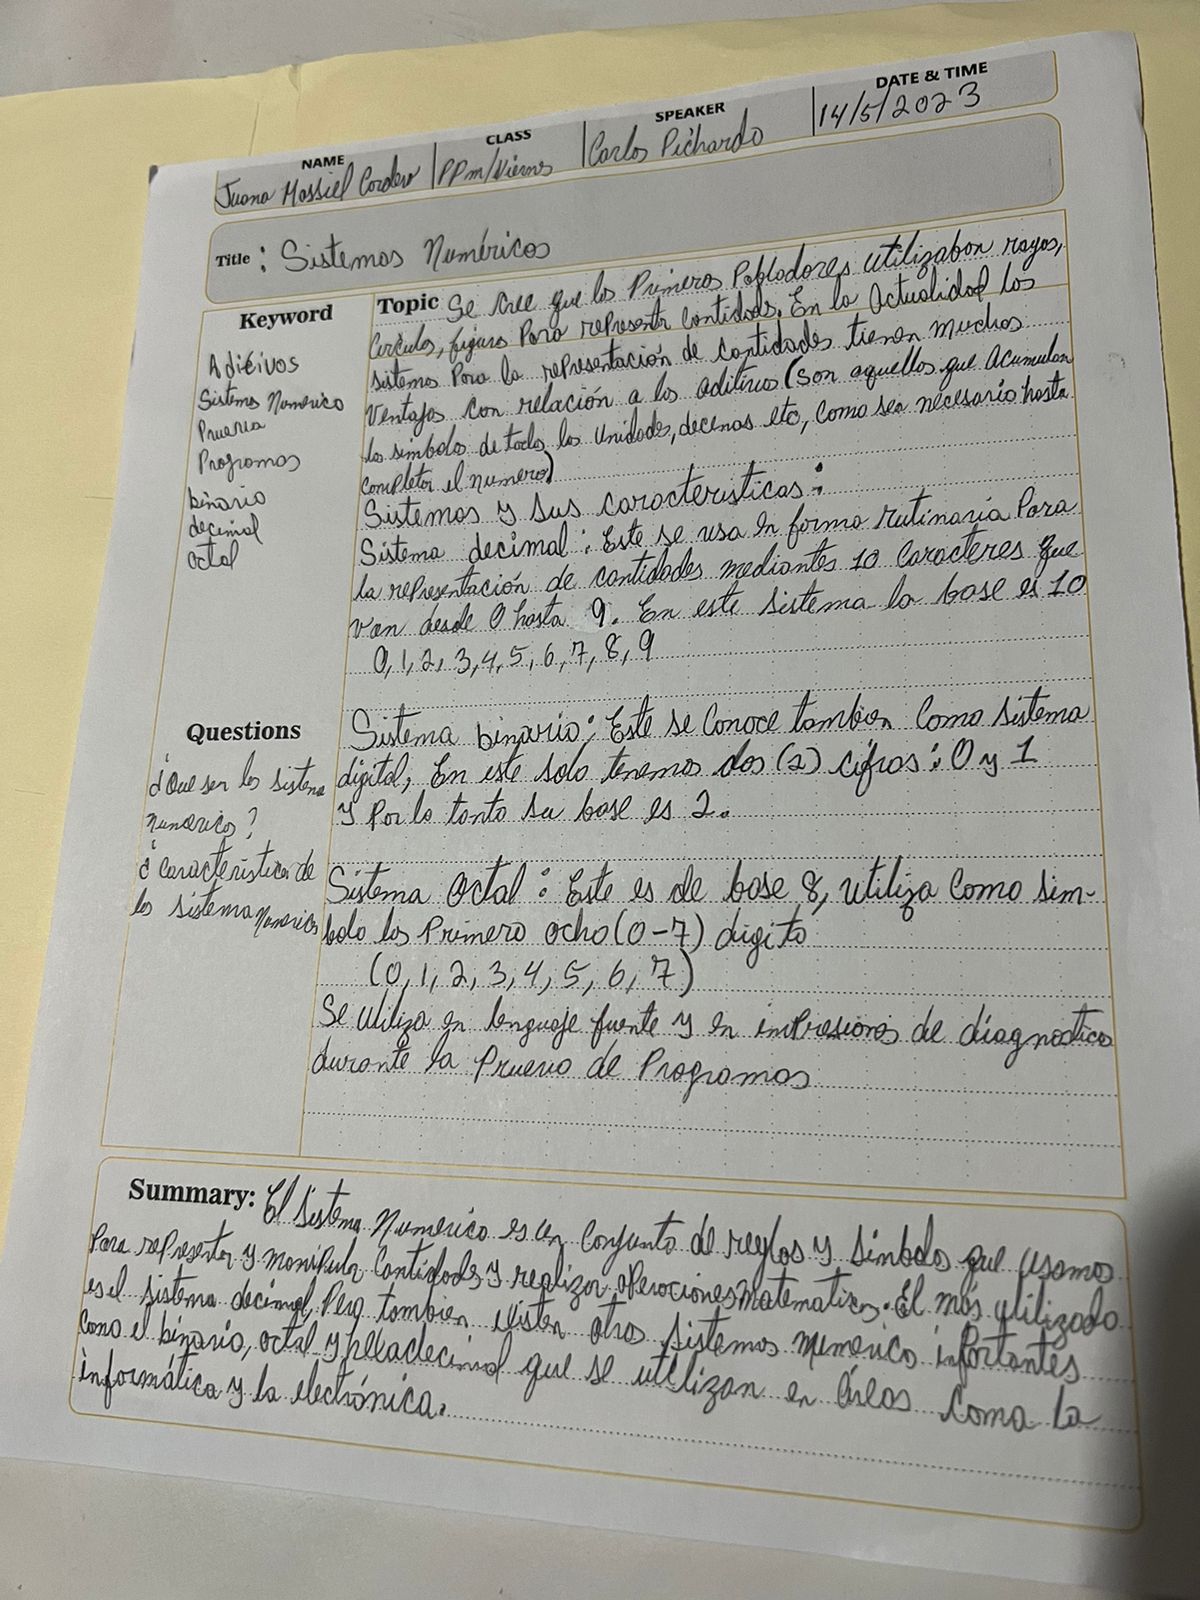 NAME CLASS SPEAKER DATE & TIME
Juana Massiel Cordero PPm/Viernes Carlos Pichardo 14/5/2023
Title : Sistemas Numéricos
Keyword
Adicivos
Sistema Numerico
Prueva
Programas
binario
decimal
Octal
Topic Se cree que los Primeros Pobladores utilizaban rayas,
Circulos, figuras Para representr Cantidades. En la Actualidad los
sistemas Para la representación de cantidades tienen muchas
Ventajas con relación a los aditivos (son aquellos que Acumulan
los simbolos de todas las Unidades, decenas etc, Como sea necesario hasta
completar el numero)
Sistemas y sus caracteristicas:
Sistema decimal: Este se usa en forma rutinaria Para
la representación de cantidades mediantes 10 Caracteres que
van desde 0 hasta 9. En este sistema la base es 10
0, 1, 2, 3, 4, 5, 6, 7, 8, 9
Sistema binario: Este se Conoce tambien Como sistema
digital, En este solo tenemos dos (2) cifras: 0 y 1
y Por lo tanto su base es 2.
Sistema Octal: Este es de base 8, utiliza Como sim-
bolo los Primero ocho (0-7) digito
(0, 1, 2, 3, 4, 5, 6, 7)
Se utiliza en lenguaje fuente y en impresiones de diagnostico
durante la Prueva de Programas
Questions
¿Que son los sistema
numerico?
¿caracteristica de
los sistema numericos
Summary: El sistema Numerico es un Conjunto de reglas y simbolo que usamos
Para representar y manipular Cantidades y realizar operaciones matematica. El más utilizado
es el sistema decimal, Pero tambien existen otros sistemas numerico importantes
como el binario, octal y hexadecimal que se utilizan en áreas como la
informática y la electrónica.